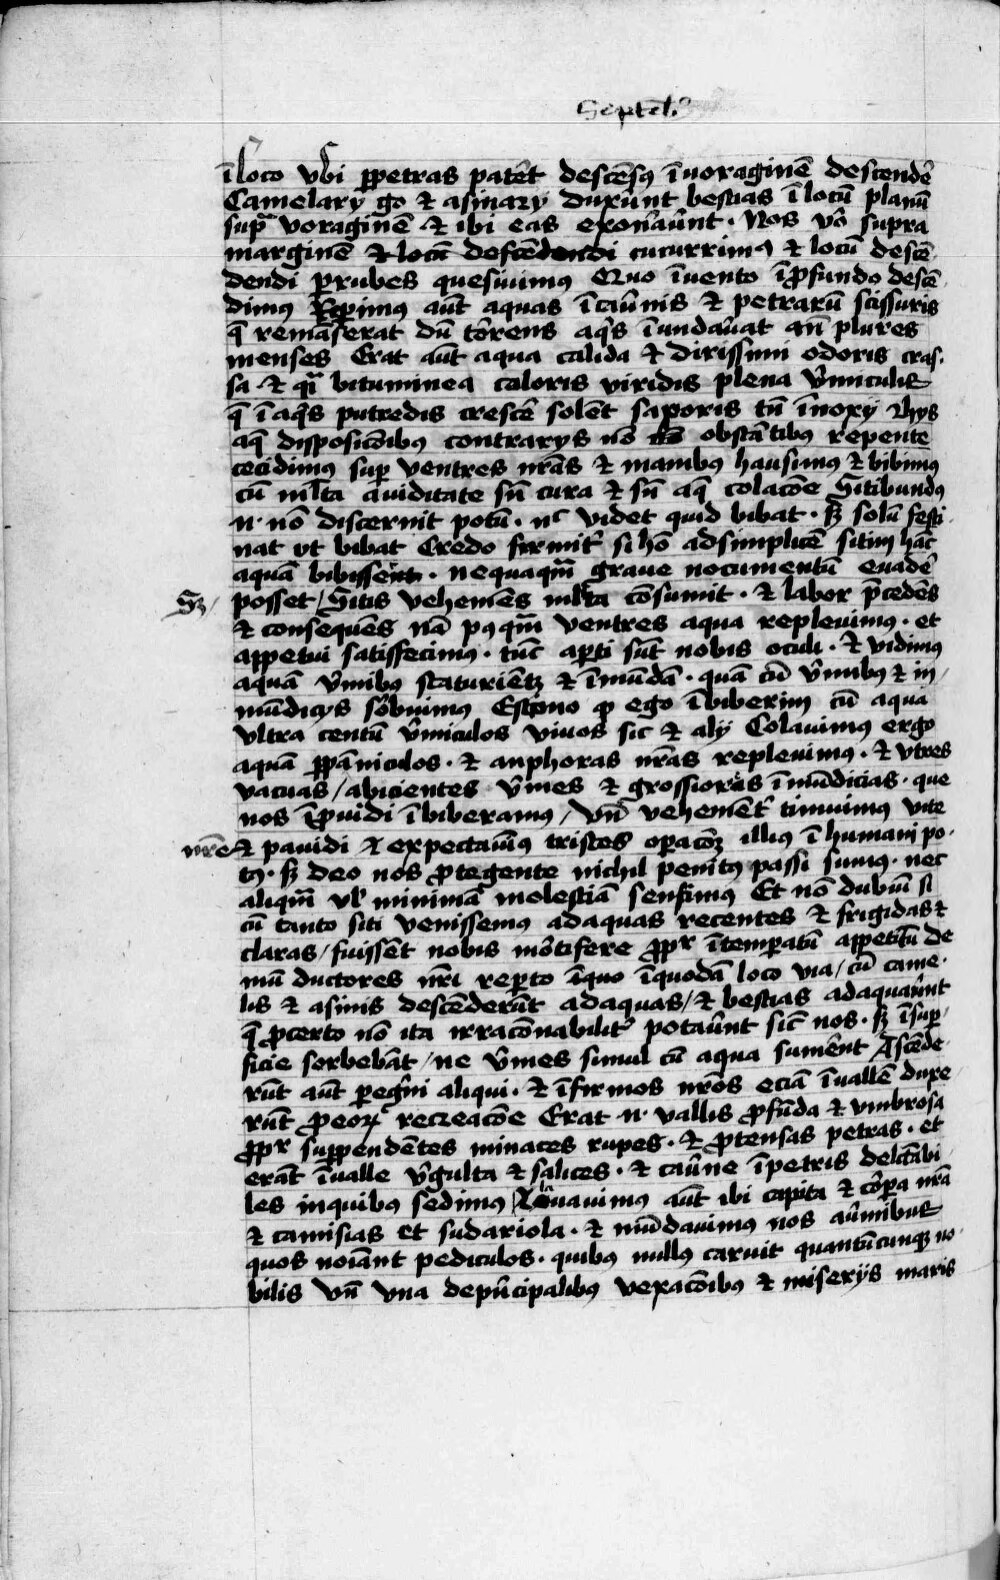 Septēb3
ī loco vbi ꝑ petras patēt descēsꝰ ī voraginē descendē
Camelarÿ g̊o & asinarÿ duxerūnt bestias ī locū planū
supᵃ voraginē & ibi eas exonāūnt · Nos v̊o supra
marginē & locū descēdendi cucurrimꝰ & locū descē
dendi p rubes quesiuimus Quo īuento ī ꝓfundo descē
dimꝰ Repimus aūt aquas ī cāunis & petrarū scissuris
q̄ remāserat dū torrens aq̄s īundāuat an̄ plures
menses Erat aūt aqua calida & dirissimi odoris cras
sa & qᵃ bituminea coloris viridis plena v̄miculis
q̄ ī aq̄s putredis crescē solēt saporis tn̄ īnoxÿ Hys
aq̄ dispositōibus contrarys nō obstātibus repente
cecidimus sup ventres nr̄as & manibus hausimus & bibimus
cū ml̄ta auiditate sn̄ cura & sn̄ aq̄ colacōe Sitibundꝰ
n · nō discernit potū · nᶜ videt quid bibat · sꝫ solū festi
nat vt bibat Credo firmiť si hō ad simplicē sitim hāc
aquā bibissent · nequaqᵃm graue nocumentū euadē
Sꝫ / posset / Sitis vehemēs ml̄ta cōsumit · & labor p̄cedēs
& consequēs nā pꝰqᵃm ventres aqua repleuimus · et
appetui satisfecimus · tūc apti sūt nobis oculi · & vidimus
aquā v̄mibus scaturiētē & īmūdā · quā cū v̄mibus & in
mūdicÿs sorbuimus Estimo ꝙ ego ībiberim cū aqua
vltra centū v̄miculos viuos sic & alÿ Colauimus ergo
aquā ꝑ pāniculos · & anphoras nr̄as repleuimus · & vtres
vacuas / abicientes v̄mes & grossiores īmūdicias · que
nos īprouidi ībiberamus / Vn̄ vehemēť timuimus vite
nr̄e & pauidi & expectauimꝰ tristes opacōꝫ illius ī humani po
tꝰ · sꝫ deo nos ꝓtegente nichil penitꝰ passi sumus · nec
aliqᵃm vl̓ minimā molestiā sensimus Et nō dubiū si
cū tanto siti venissemus ad aquas recentes & frigidas &
claras / fuissēt nobis mōtifere ꝓpʳ ītemperatū appetitū de
mū ductores nr̄i reperto īquo īquodā loco via / cū came
lis & asinis descēderūt ad aquas / & bestias adaquāūnt
q̄ ꝓcerto nō ita irracōnabiliť potāūnt sicᵗ nos · sꝫ ī sup
ficie sorbebāt / ne v̄mes simul cū aqua sumēnt Ascēde
rūt aūt pegr̄ni aliqui · & īfirmos nr̄os eciā ī vallē duxe
rūt ꝓ eoꝝ recreacōe Erat n · vallis ꝓfūda & vmbrosa
ꝓpʳ suppendētes minaces rupes · & ꝓtensas petras · et
erāt ī valle v̄gulta & salices · & cāūne ī petris delectabi
les in quibus sedimus Lauauimus aūt ibi capita & corpa nr̄a
& camisias et sudariola · & mūdauimus nos a v̄mibus
quos noīant pediculos · quibus nullus caruit quantūcunqꝫ no
bilis Vn̄ vna de pn̄cipalibus vexacōibus & miserÿs maris